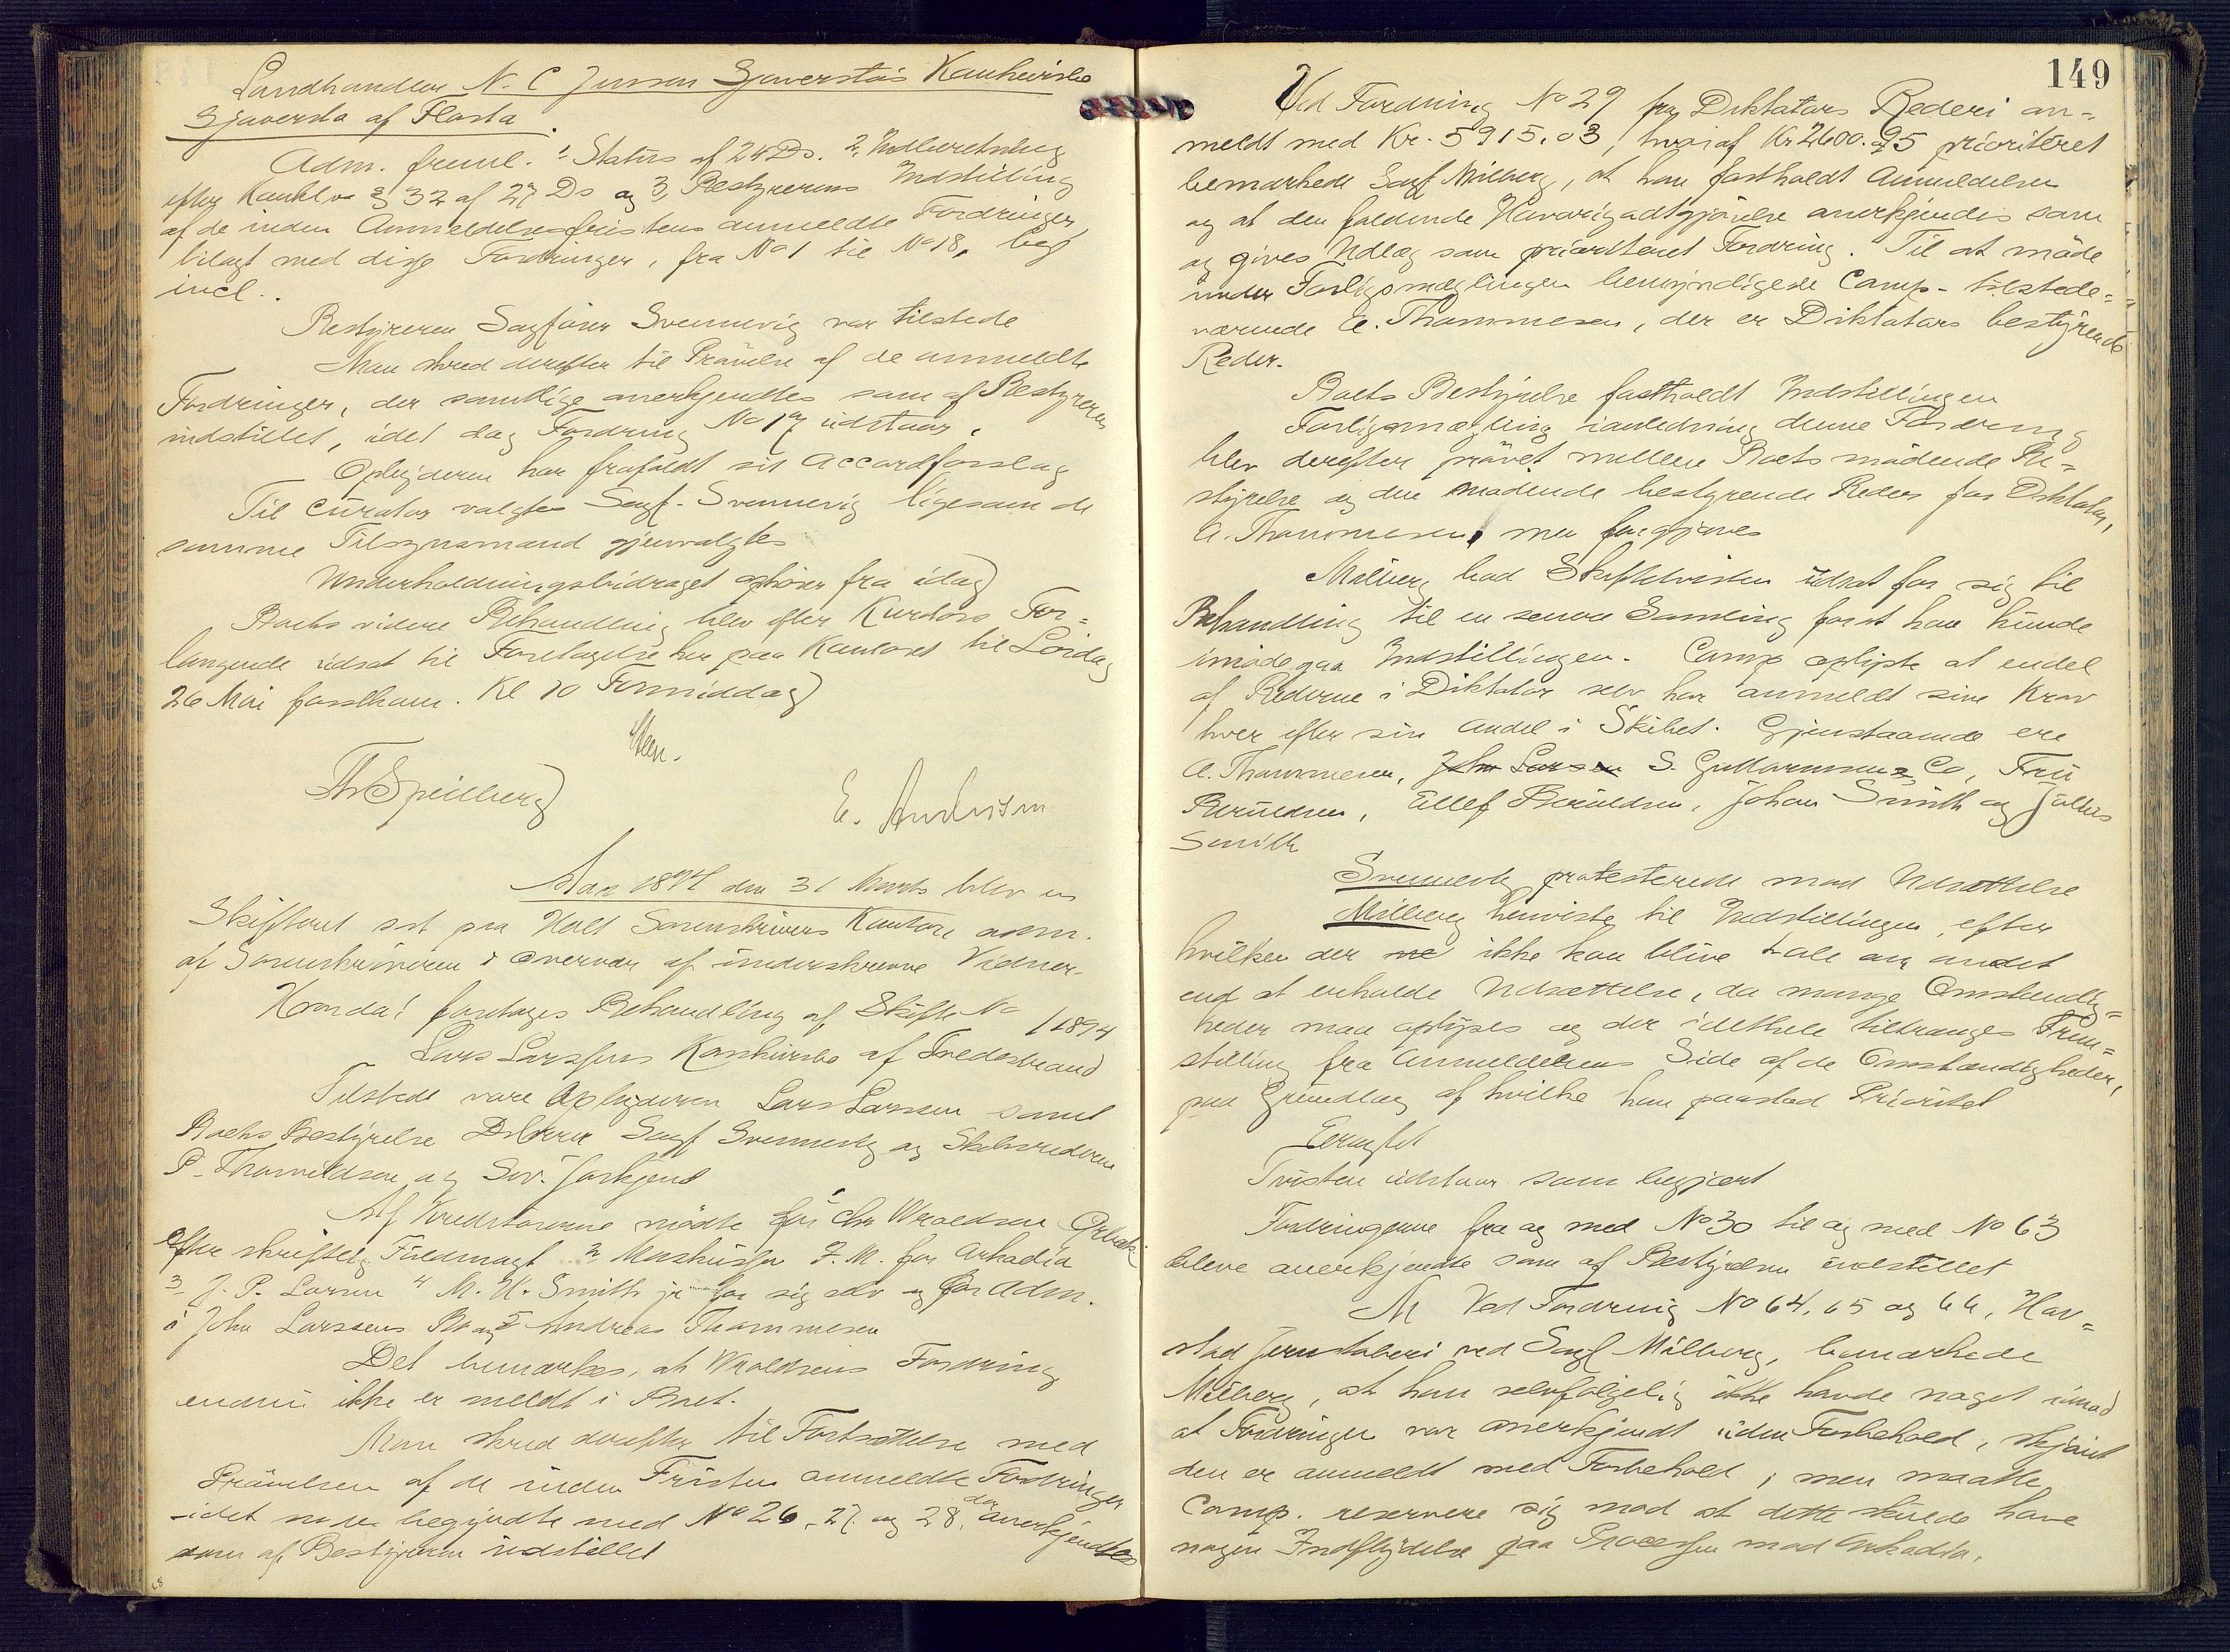 Landhandler N. C Jensen Sjaverstøs Konkursbo
Sjaversta af Flosta.
Adm. freml. 1, Status af 24 Ds. 2, Indberetning
efter Konkl v § 32 af 27 Ds og 3, Bestyrerens Indstilling
af de inden Anmeldelsesfristens anmeldte Fordringer,
bilagt med disse Fordringer, fra No 1 til No 18, beg
incl..
Bestyreren Sagfører Svennevig var tilstede
Man skred derefter til Prøvelse af de anmeldte
Fordringer, der samtlige anerkjendtes som af Bestyreren
indstillet, idet dog Fordring No 17 udstaar.
Opbyderen har frafaldt sit Accordforslag
Til Curator valgtes Sagf. Svennevig ligesom de
samme Tilsynsmænd gjenvalgtes
Underholdningsbidraget ophører fra idag
Boets videre Behandling blev efter Kurators For=
langende udsat til Foretagelse her paa Kontoret til Lördag
26 Mai førstkom. Kl 10 Formiddag
Steen.
Th Speilberg
E. Andersen
Aar 1894 den 31 Marts blev en
Skifteret sat paa Holt Sorenskrivers Kontor adm.
af Sorenskriveren i Overvær af underskrevne Vidner.
Hvorda! foretoges Behandling af Skifte No /1894
Lars Larssens Konkursbo af Tvedestrand
Tilstede vare Opbyderen Lars Larssen samt
Boets Bestyrelse DHerrer Sagf. Svennevig og Skibsrederne
P. Thorvildsen og Sev. Jorkjend
Af Kreditorerne mødte for Chr Wroldsen
efter skriftelig Fuldmagt 2, F. M. for Arkadia
3, J. P. Larsen 4 M. H. Smith jr for sig selv og for Adm.
i John Larssens Bo og 5 Andreas Thommesen
Det bemærkes, at Wroldsens Fordring
endnu ikke er meldt i Boet.
Man skred derefter til Fortsættelse med
Prøvelsen af de inden Fristen anmeldte Fordringer
idet man begyndte med No 26, 27 og 28, der anerkjendtes
som af Bestyreren indstillet
149
Ved Fordring No 29 fra Diktators Rederi an=
meldt med Kr. 5915.03, hvoraf Kr 2600.95 prioriteret
bemærkede Sagf Milberg, at han fastholdt Anmeldelsen
og at den faldende Havarigodtgjørelse anerkjendes som
og gives Udlæg som prioriteret Fordring. Til at møde
under Forligsmæglingen bemyndigede Comp. tilstede=
værende A. Thommesen, der er Diktators bestyrende
Reder.
Boets Bestyrelse fastholdt Indstillingen
Forligsmægling i anledning denne Fordring
blev derefter prøvet mellem Boets mødende Be=
styrelse og den mødende bestyrende Reder for Diktator,
A. Thommesen, men forgjæves
Milberg bad Skiftetvisten udsat for sig til
Behandling til en senere Samling forat han kunde
imødegaa Indstillingen. Comp oplyste at endel
af Rederne i Diktator selv har anmeldt sine Krav
hver efter sin Andel i Skibet. Gjenstaaende ere
A. Thommesen, John Larsen S. Gullormsen & Co, Fru
Beruldsen, Ellef Beruldsen, Johan Smith og Julius
Smith
Svennevig protesterede mod Udsættelse
Milberg henviste til Indstillingen, efter
hvilken der ikke kan blive tale om andet
end at erholde Udsættelse, da mange Omstændig=
heder maa oplyses og der idethele tiltrænges Frem=
stilling fra Anmelderens Side af de Omstændigheder,
paa Grundlag af hvilke han paastod Prioritet
Eragtet
Tvisten udstaar som begjært
Fordringerne fra og med No 30 til og med No 63
bleve anerkjendte som af Bestyrelsen indstillet
Ved Fordring No 64, 65 og 66, Hav=
stad Jernstøberi ved Sagf Milberg, bemærkede
Milberg, at han selvfølgelig ikke havde noget imod
at Fordringen var anerkjendt uden Forbehold, skjønt
den er anmeldt med Forbehold; men maatte
Comp. reservere sig mod at dette skulde have
nogen Indflydelse paa Processen mod Arkadia.